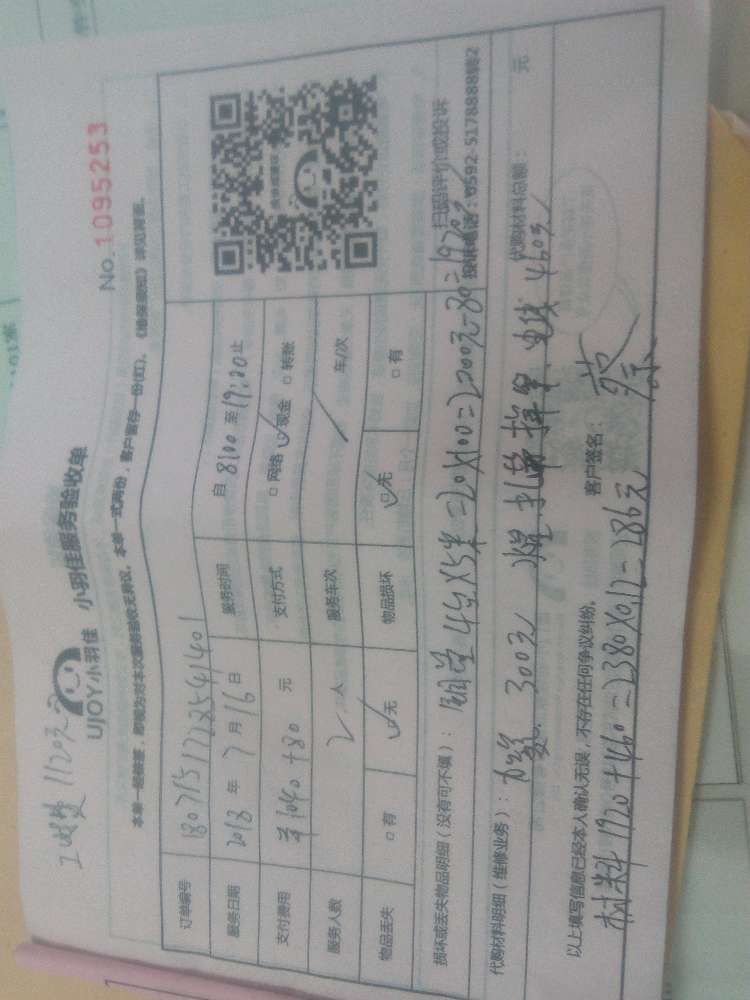 工时费 1120元
UJOY小羽佳 小羽佳服务验收单
No. 1095253
本单一经签签，即视为对本次服务验收无异议。本单一式两份，客户留存一份(红)。《维保须知》详见背面。
订单编号 180715172854140 1
服务日期 2018 年 7 月 16 日 服务时间 自 8:00 至 17:00 止
支付费用 1040 +80 元 支付方式 □ 网络 ☑ 现金 □ 转账
服务人数 2 人 服务车次 / 车/次
物品丢失 □ 有 ☑ 无 物品损坏 ☑ 无 □ 有
扫码评价或投诉
投诉电话：0592-5178888转2
损坏或丢失物品明细（没有可不填）： 4台X5米=20X100=2000元-80=1920元
代购材料明细（维修业务）： 300元 电线 460元 代购材料总额： 元
以上填写信息已经本人确认无误，不存在任何争议纠纷。 客户签名： 蔡
材料 1920+460=2380X0.12=286元